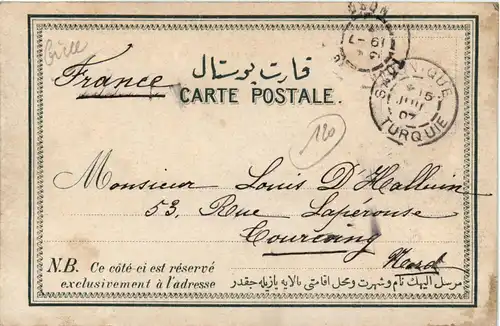 France
قارت پوستال
CARTE POSTALE.
SALONIQUE
15
JUIL
07
TURQUIE
120
Monsieur Louis D'Halluin
53, Rue Lapérouse
Tourcoing
Nord
N.B. Ce côté-ci est réservé
exclusivement à l'adresse
مرسل اليهك نام و شهرت و محل اقامتی بالایه یازیله جقدر